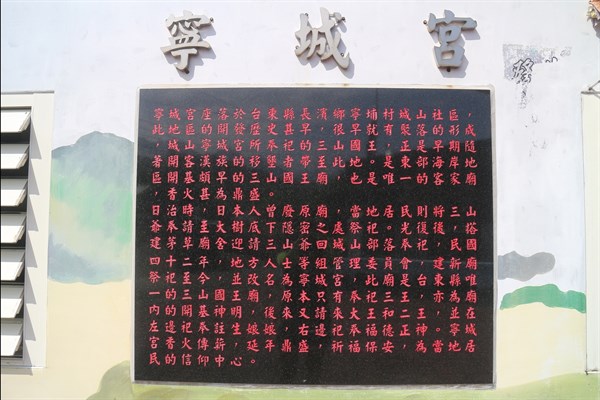 寧城宮
寧城宮座落於台東縣長濱鄉寧埔村城山社區，
此地區的開發歷史甚早，很早就有聚落的形成
，城山寧城宮所奉祀的三山國王，正是早期隨
著開客漢族的移墾者帶至此地。是東部海岸地
區開基頗早的三山國王廟，也是唯一的客家廟
，香火甚為鼎盛。
日治時，日本人曾廢原廟，當地居民則將三山
爺奉請至大樹底下隱密之處祭祀。光復後，搭
建草廟迎請三山爺回城山部落奉祀，民國
四十二年，地方人士等組管理委員會建新廟
祭祀至今，並改名為寧城宮，此廟是台東縣唯
一的三山國王廟，原本只有奉祀三王，王亦為廟
內的開基神明，後來又請來大王和二王。並在
左邊祀奉註生娘娘，右邊祀奉福德正神。寧城
宮香火傳薪，延年鼎盛，祈福保安，為當地居
民的信仰中心。